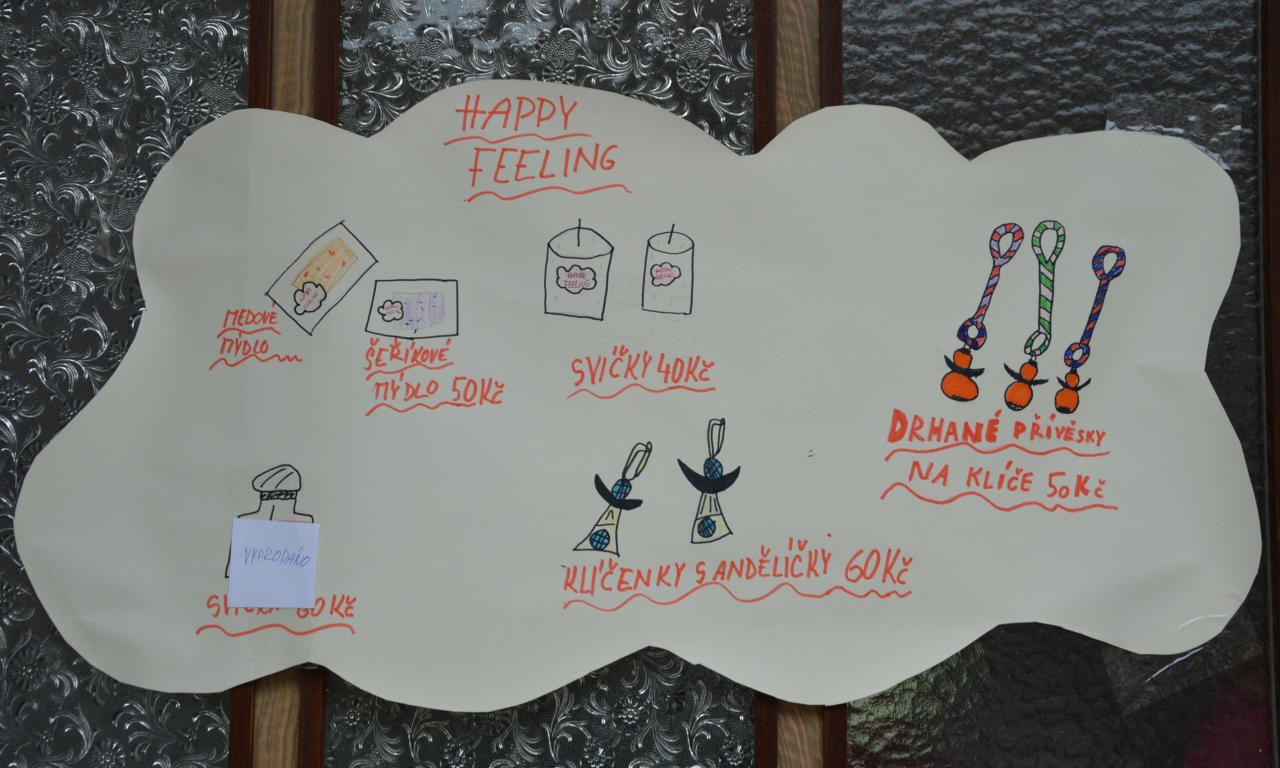 HAPPY
FEELING
MEDOVÉ
MÝDLO
ŠEŘÍKOVÉ
MÝDLO 50Kč
HAPPY
FEELING
SVÍČKY 40Kč
DRHANÉ PŘÍVĚSKY
NA KLÍČE 50Kč
VYPRODÁNO
60Kč
KLÍČENKY S ANDĚLÍČKY 60Kč